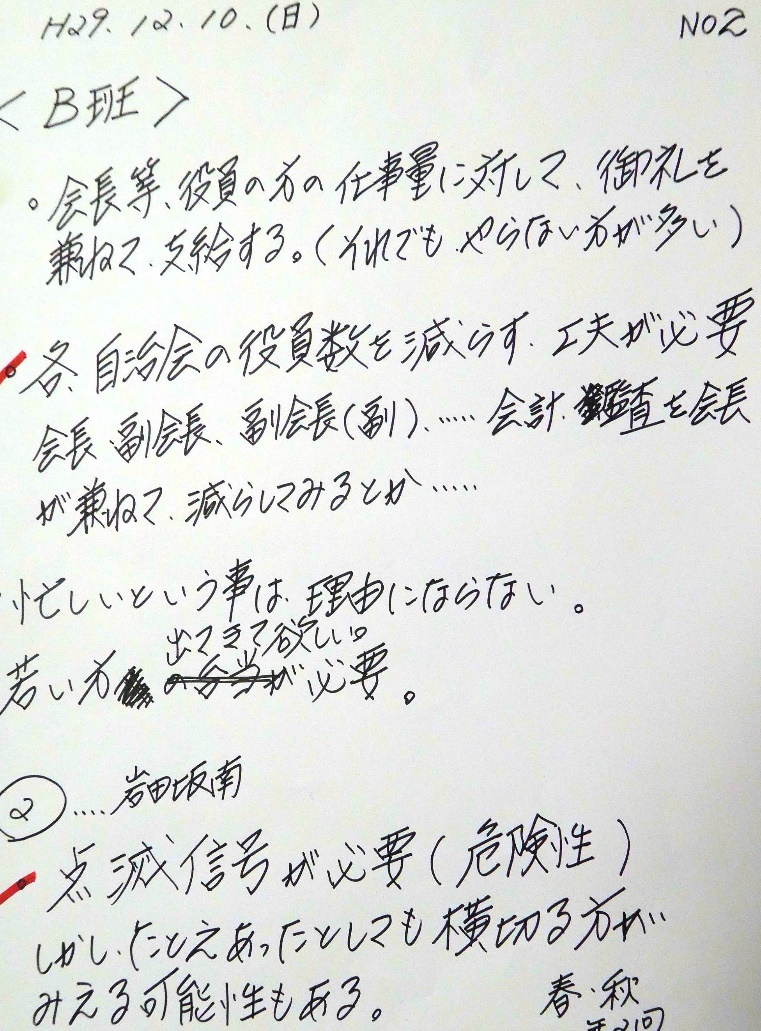 H29.12.10.(日)
NO2
<B班>
。会長等、役員の方の仕事量に対して、御礼を
兼ねて、支給する。(それでも、やらない方が多い)
。各、自治会の役員数を減らす、工夫が必要
会長、副会長、副会長(副)、……会計、鑑査を会長
が兼ねて、減らしてみるとか……
・忙しいという事は、理由にならない。
出てきて欲しい。
若い方が必要。
② ‥‥岩田坂南
・点滅信号が必要(危険性)
しかし、たとえあったとしても横切る方が
みえる可能性もある。
春・秋
年2回